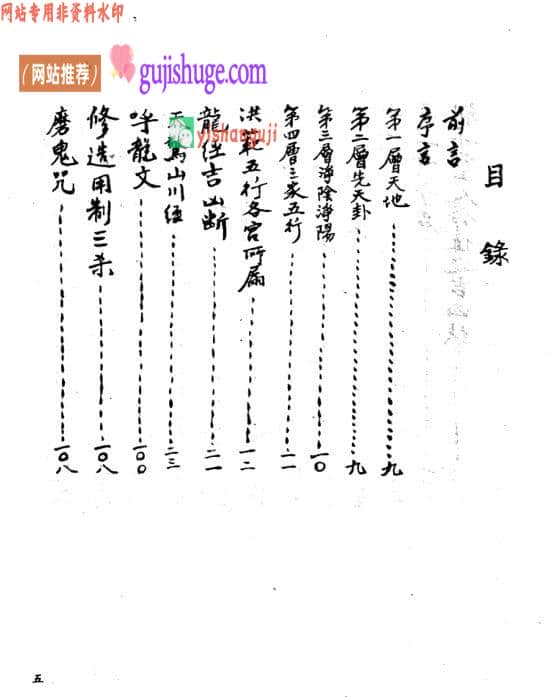 网站专用非资料水印
（网站推荐）
gujishuge.com
yishanguji
目錄
前言
序言
第一層天地 九
第二層先天卦 九
第三層淨陰淨陽 一〇
第四層三家五行 一一
洪範五行各宮所屬 一二
龍經吉凶断 二一
山川經 二三
呼龍文 一〇〇
修造用制三杀 一〇八
磨鬼咒 一〇八
五